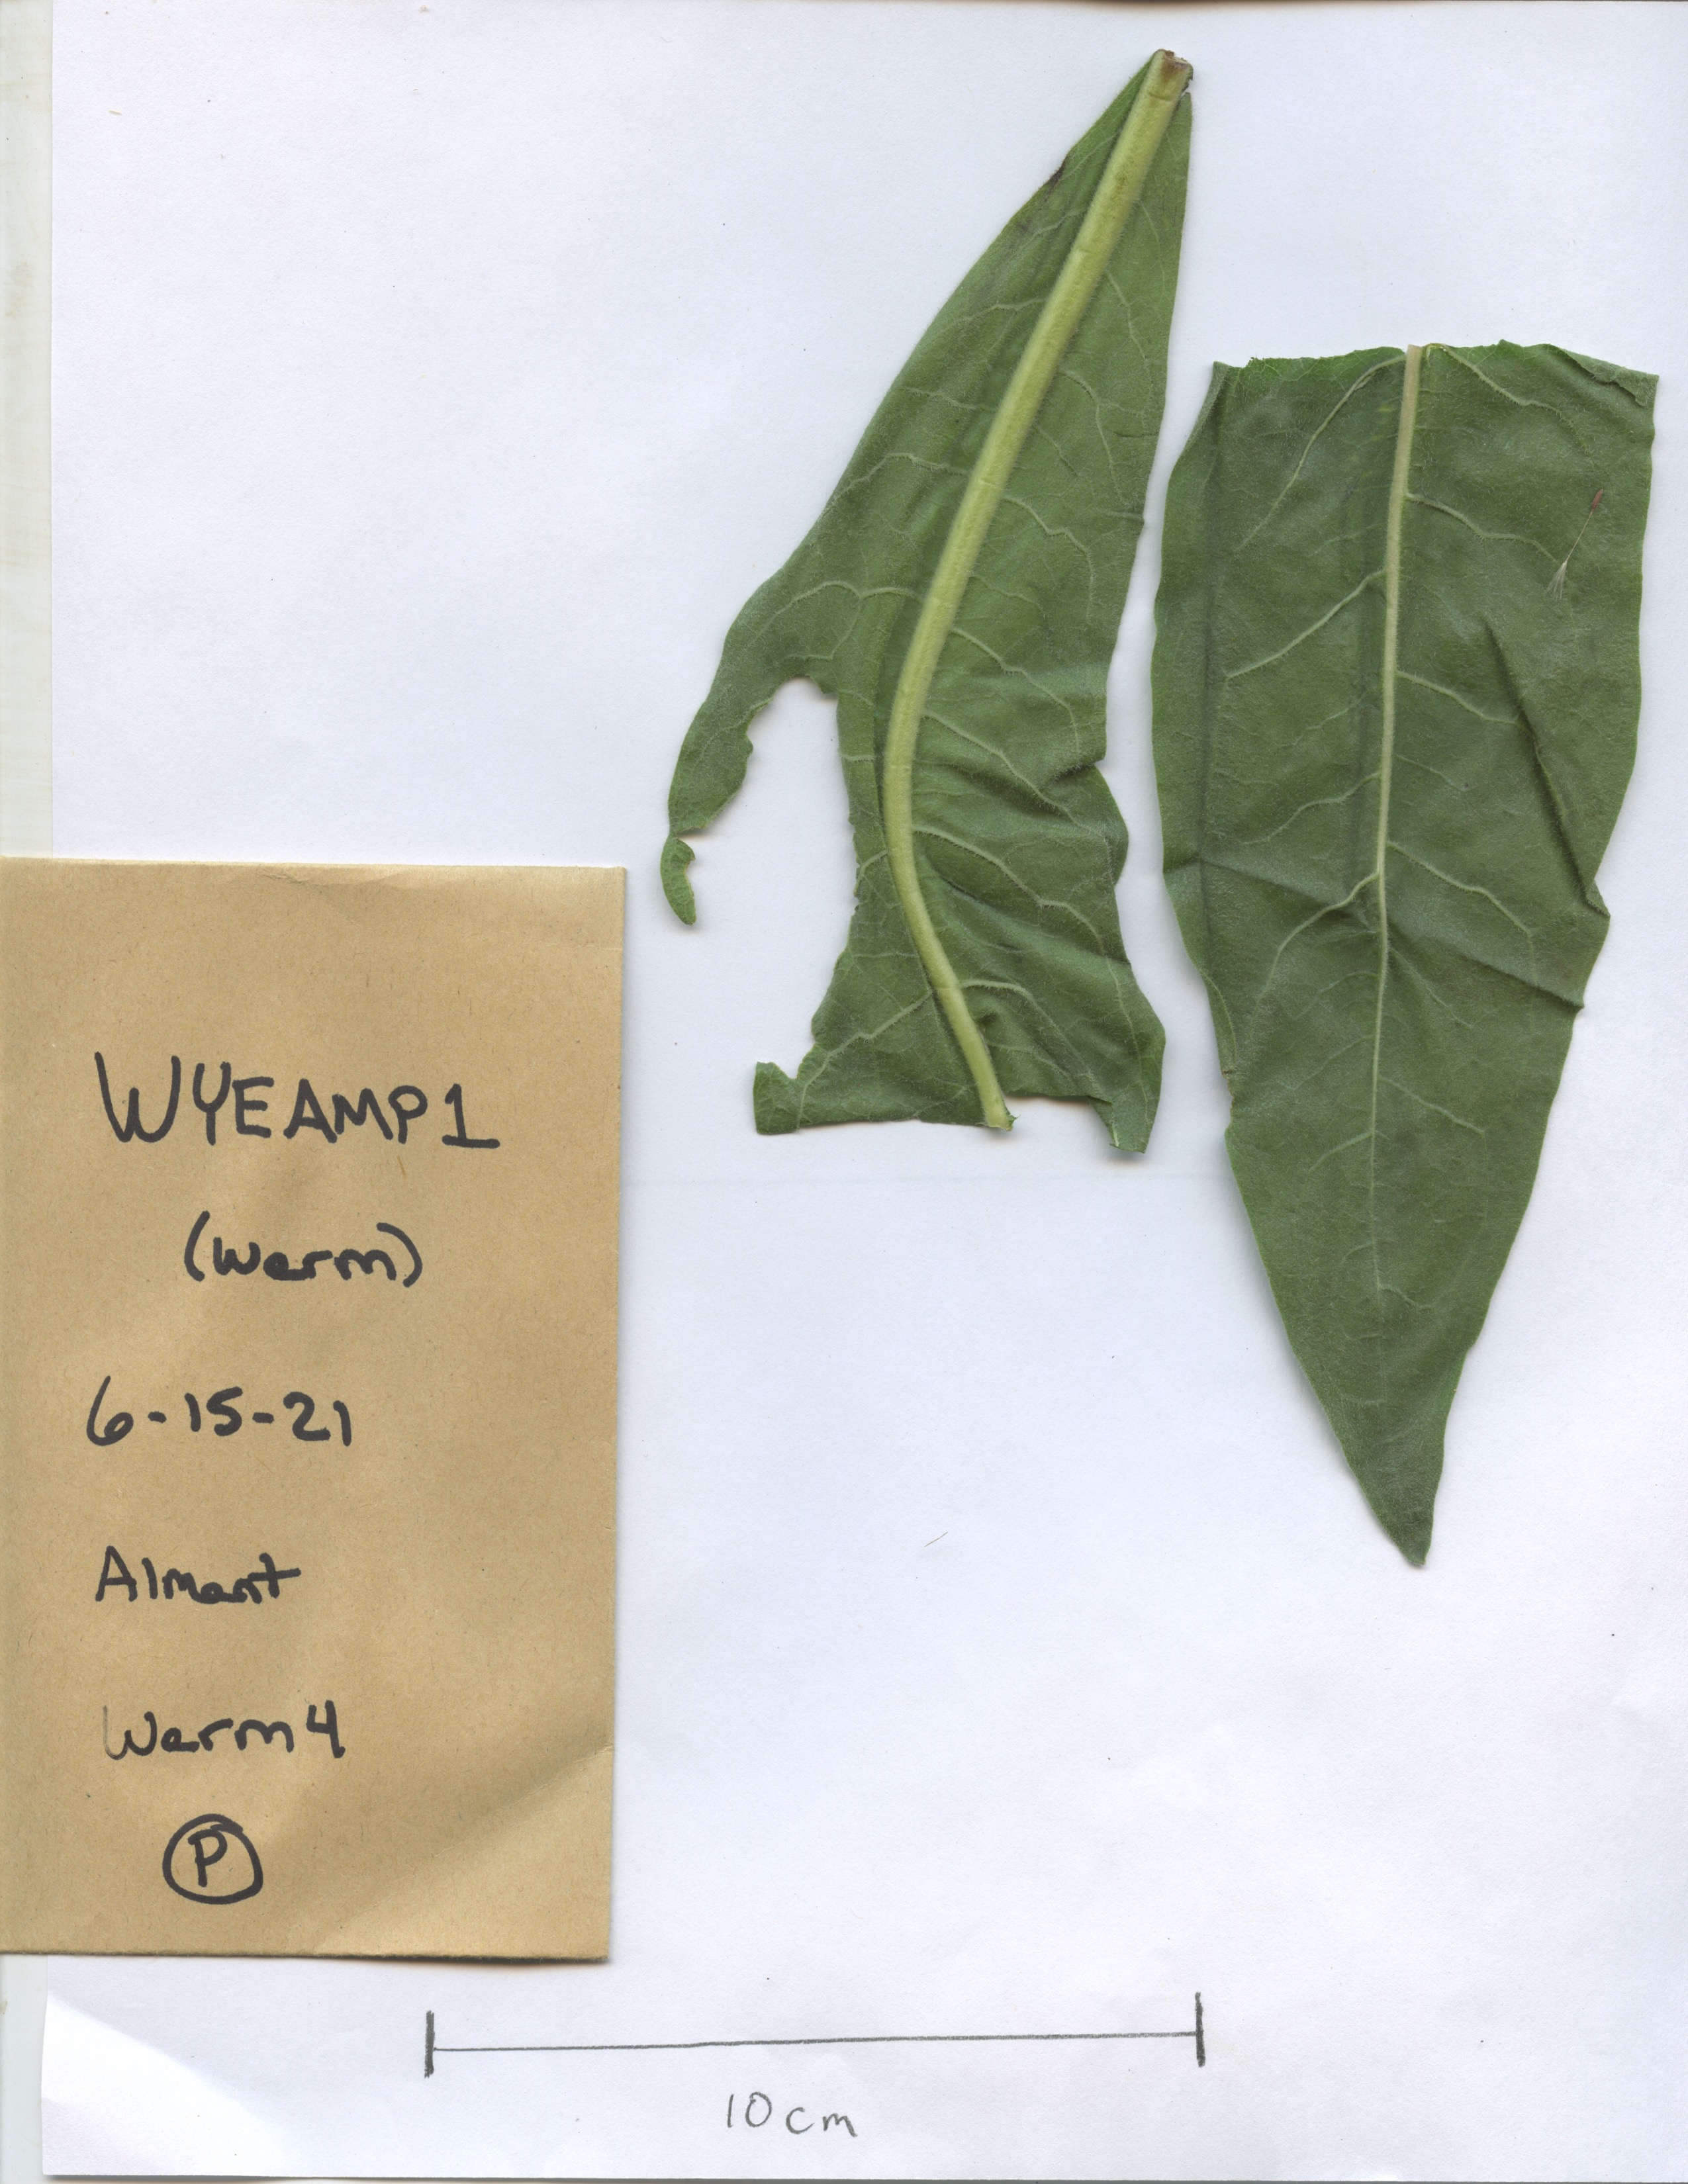 WYEAMP1
(Warm)
6-15-21
Almont
Warm 4
P
10cm